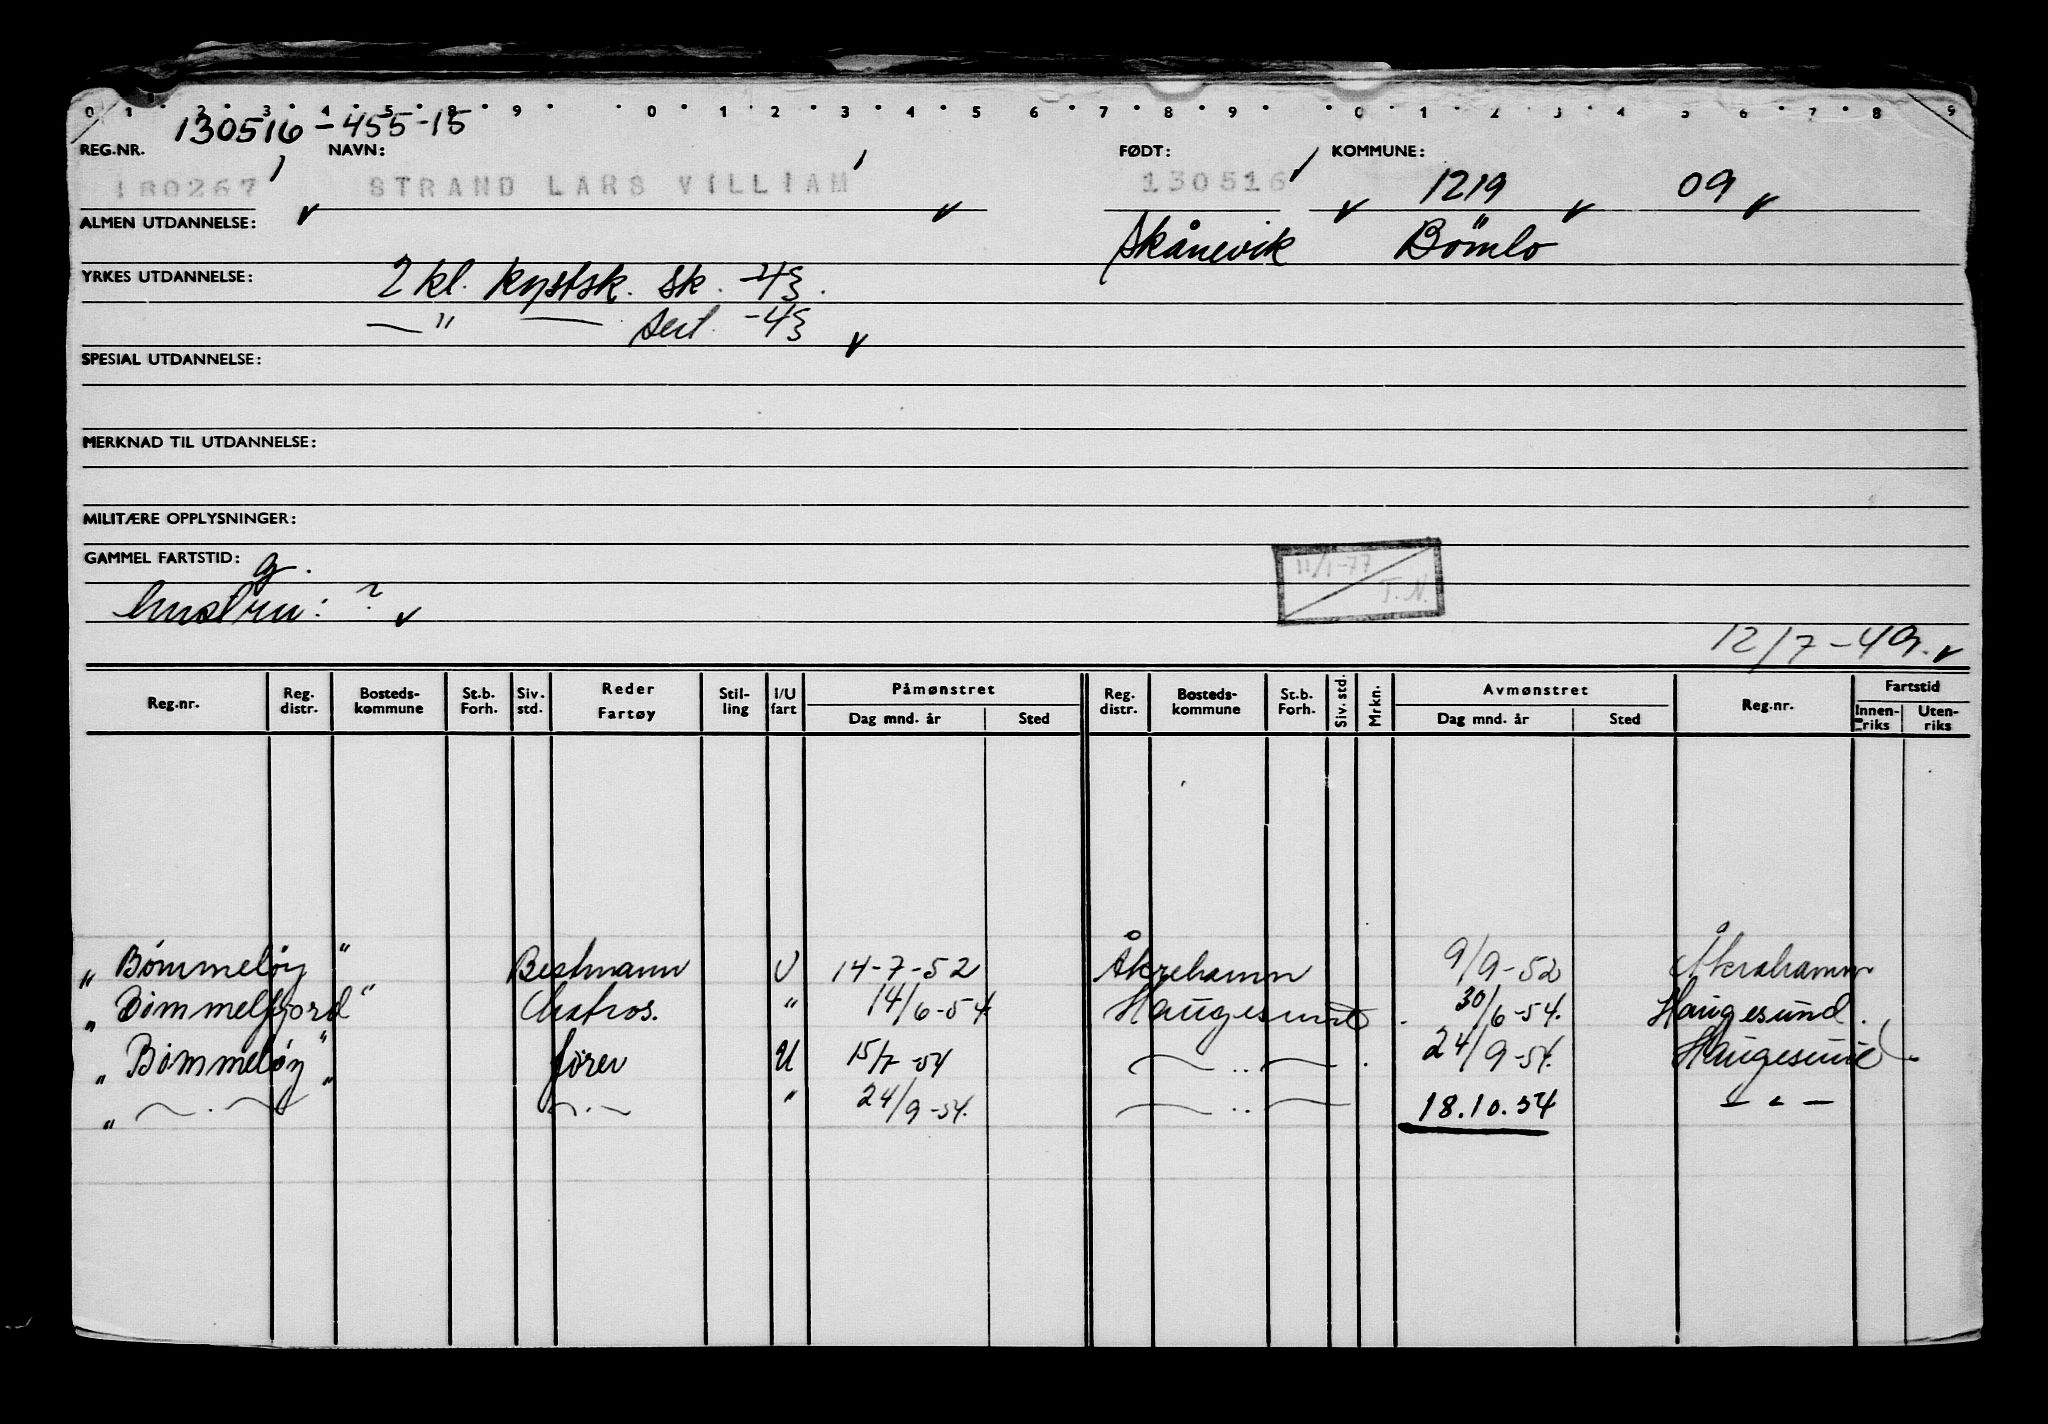 0 1 2 3 4 5 8 9 0 1 2 3 4 5 6 7 8 9 0 1 2 3 4 5 6 7 8 9
130516-455-15
REG.NR. NAVN: FØDT: KOMMUNE:
130267 STRAND LARS VILLIAM 130516 1219 09
ALMEN UTDANNELSE: Skånevik Bömlo
YRKES UTDANNELSE: 2 kl. kystsk. sk. -43.
—"— sert. -43
SPESIAL UTDANNELSE:
MERKNAD TIL UTDANNELSE:
MILITÆRE OPPLYSNINGER:
GAMMEL FARTSTID: g.
11/1-77
T.N.
hustru: ?
12/7-49.
Reg.nr. Reg. distr. Bosteds-kommune St.b. Forh. Siv. std. Reder Fartøy Stil-ling I/U fart Påmønstret Dag mnd. år Sted Reg. distr. Bosteds-kommune St.b. Forh. Siv. std. Mrkn. Avmønstret Dag mnd. år Sted Reg.nr. Fartstid Innen-riks Uten-riks
"Bømmeløy" Bestmann U 14-7-52 Åkrehamn 9/9-52 Åkrahamn
"Bømmelfjord" Matros. " 14/6-54 Haugesund. 30/6-54. Haugesund.
"Bømmeløy" fører U 15/7-54 —..—. 24/9-54. Haugesund.
" —.— " —.— " 24/9-54. —..— 18.10.54 —"—